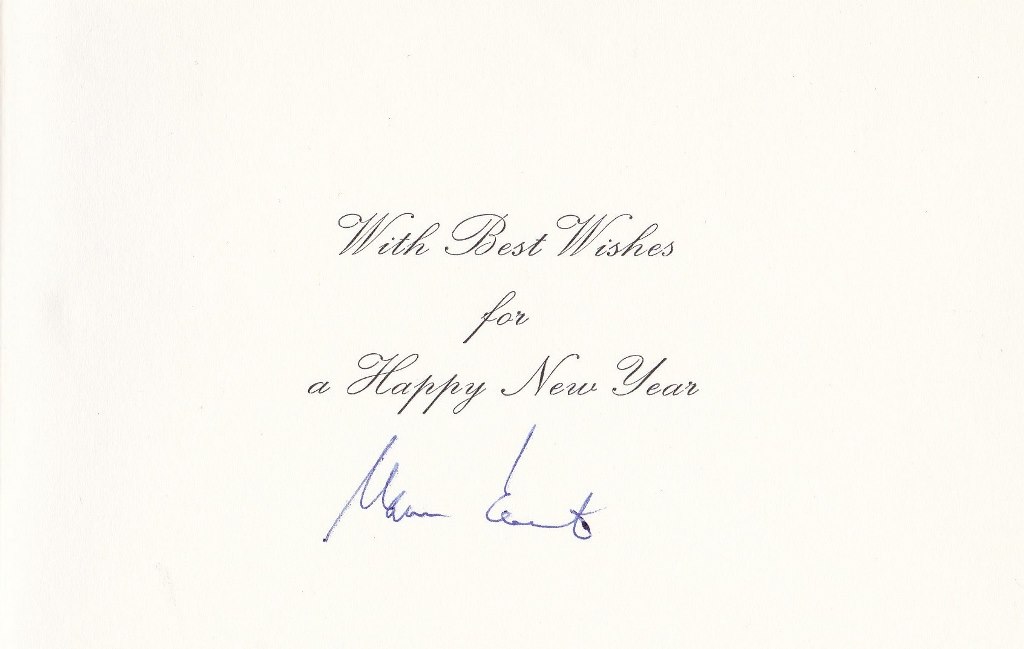 With Best Wishes
for
a Happy New Year